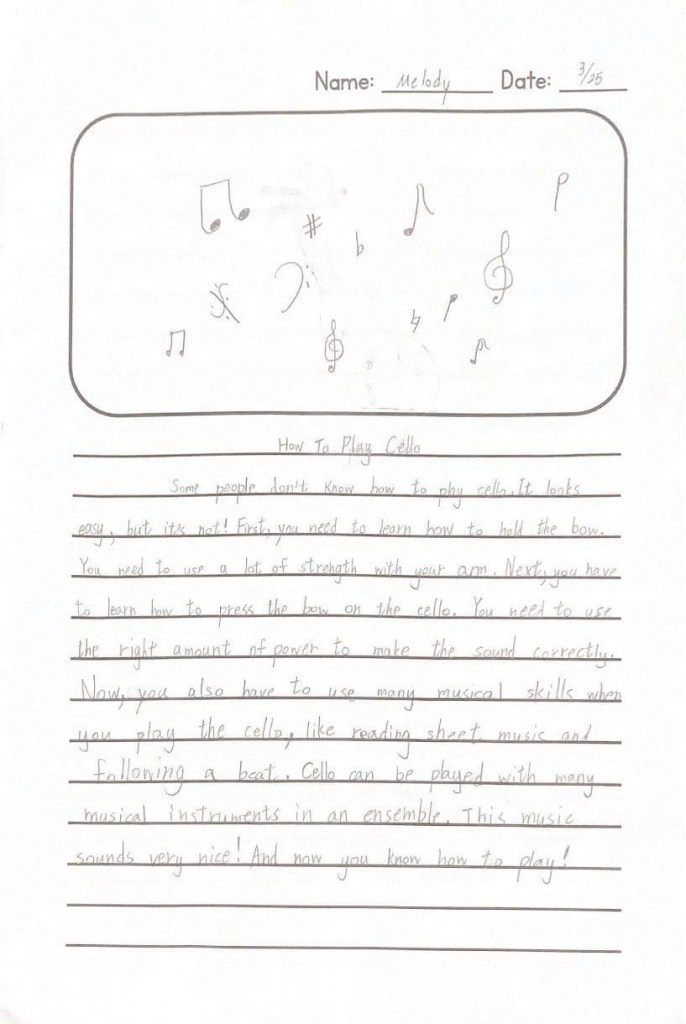 Name: Melody Date: 3/25
How To Play Cello
Some people don't know how to play cello. It looks
easy, but it's not! First, you need to learn how to hold the bow.
You need to use a lot of strength with your arm. Next, you have
to learn how to press the bow on the cello. You need to use
the right amount of power to make the sound correctly.
Now, you also have to use many musical skills when
you play the cello, like reading sheet music and
following a beat. Cello can be played with many
musical instruments in an ensemble. This music
sounds very nice! And now you know how to play!